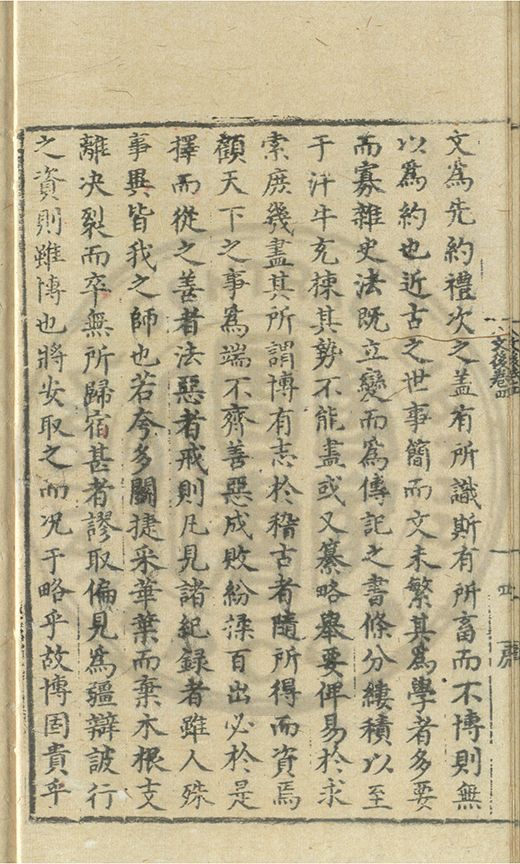 文爲先約禮次之盖有所識斯有所畜而不博則無
以爲約也近古之世事簡而文未繁其爲學者多要
而寡雜史法既立變而爲傳記之書條分縷積以至
于汗牛充棟其勢不能盡或又纂略舉要俾易於求
索庶幾盡其所謂博有志於稽古者隨所得而資焉
顧天下之事爲端不齊善惡成敗紛渫百出必於是
擇而從之善者法惡者戒則凡見諸紀録者雖人殊
事異皆我之師也若夸多鬬捷采華葉而棄木根支
離決裂而卒無所歸宿甚者謬取偏見爲彊辯詖行
之資則雖博也將安取之而况于略乎故博固貴乎
文後卷四